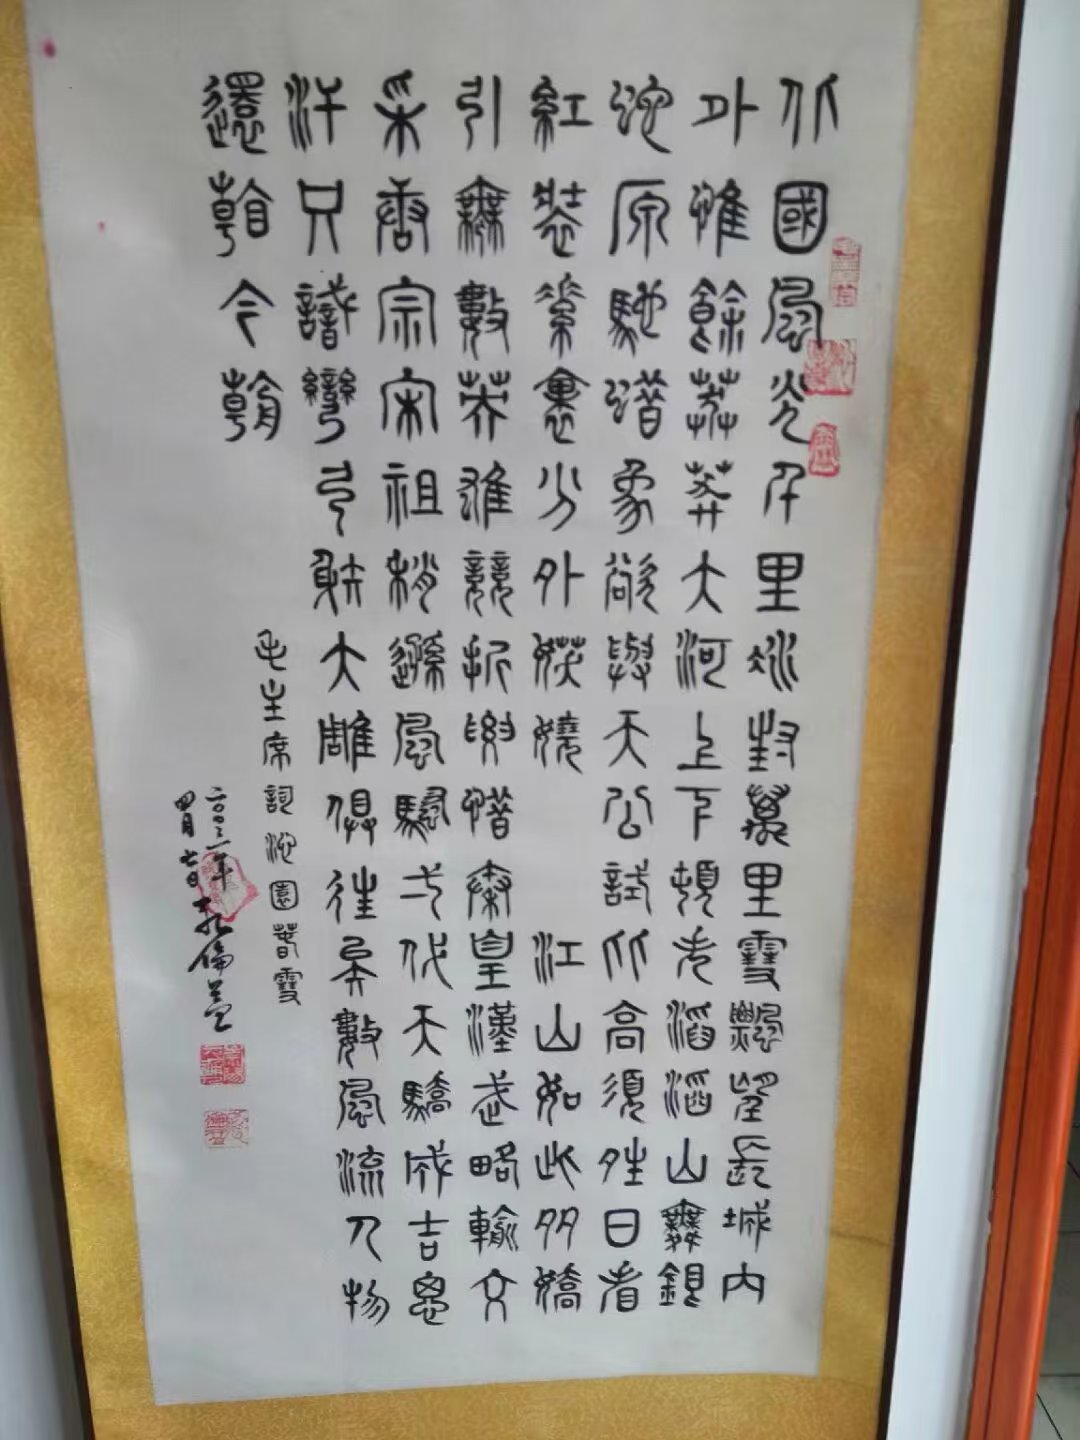 北國風光千里冰封萬里雪飄望長城內
外惟餘莽莽大河上下頓失滔滔山舞銀
蛇原馳蜡象欲與天公試比高須晴日看
紅裝素裹分外妖嬈 江山如此多嬌
引無數英雄競折腰惜秦皇漢武略輸文
采唐宗宋祖稍遜風騷一代天驕成吉思
汗只識彎弓射大雕俱往矣數風流人物
還看今朝
毛主席詞沁園春雪
四月七日